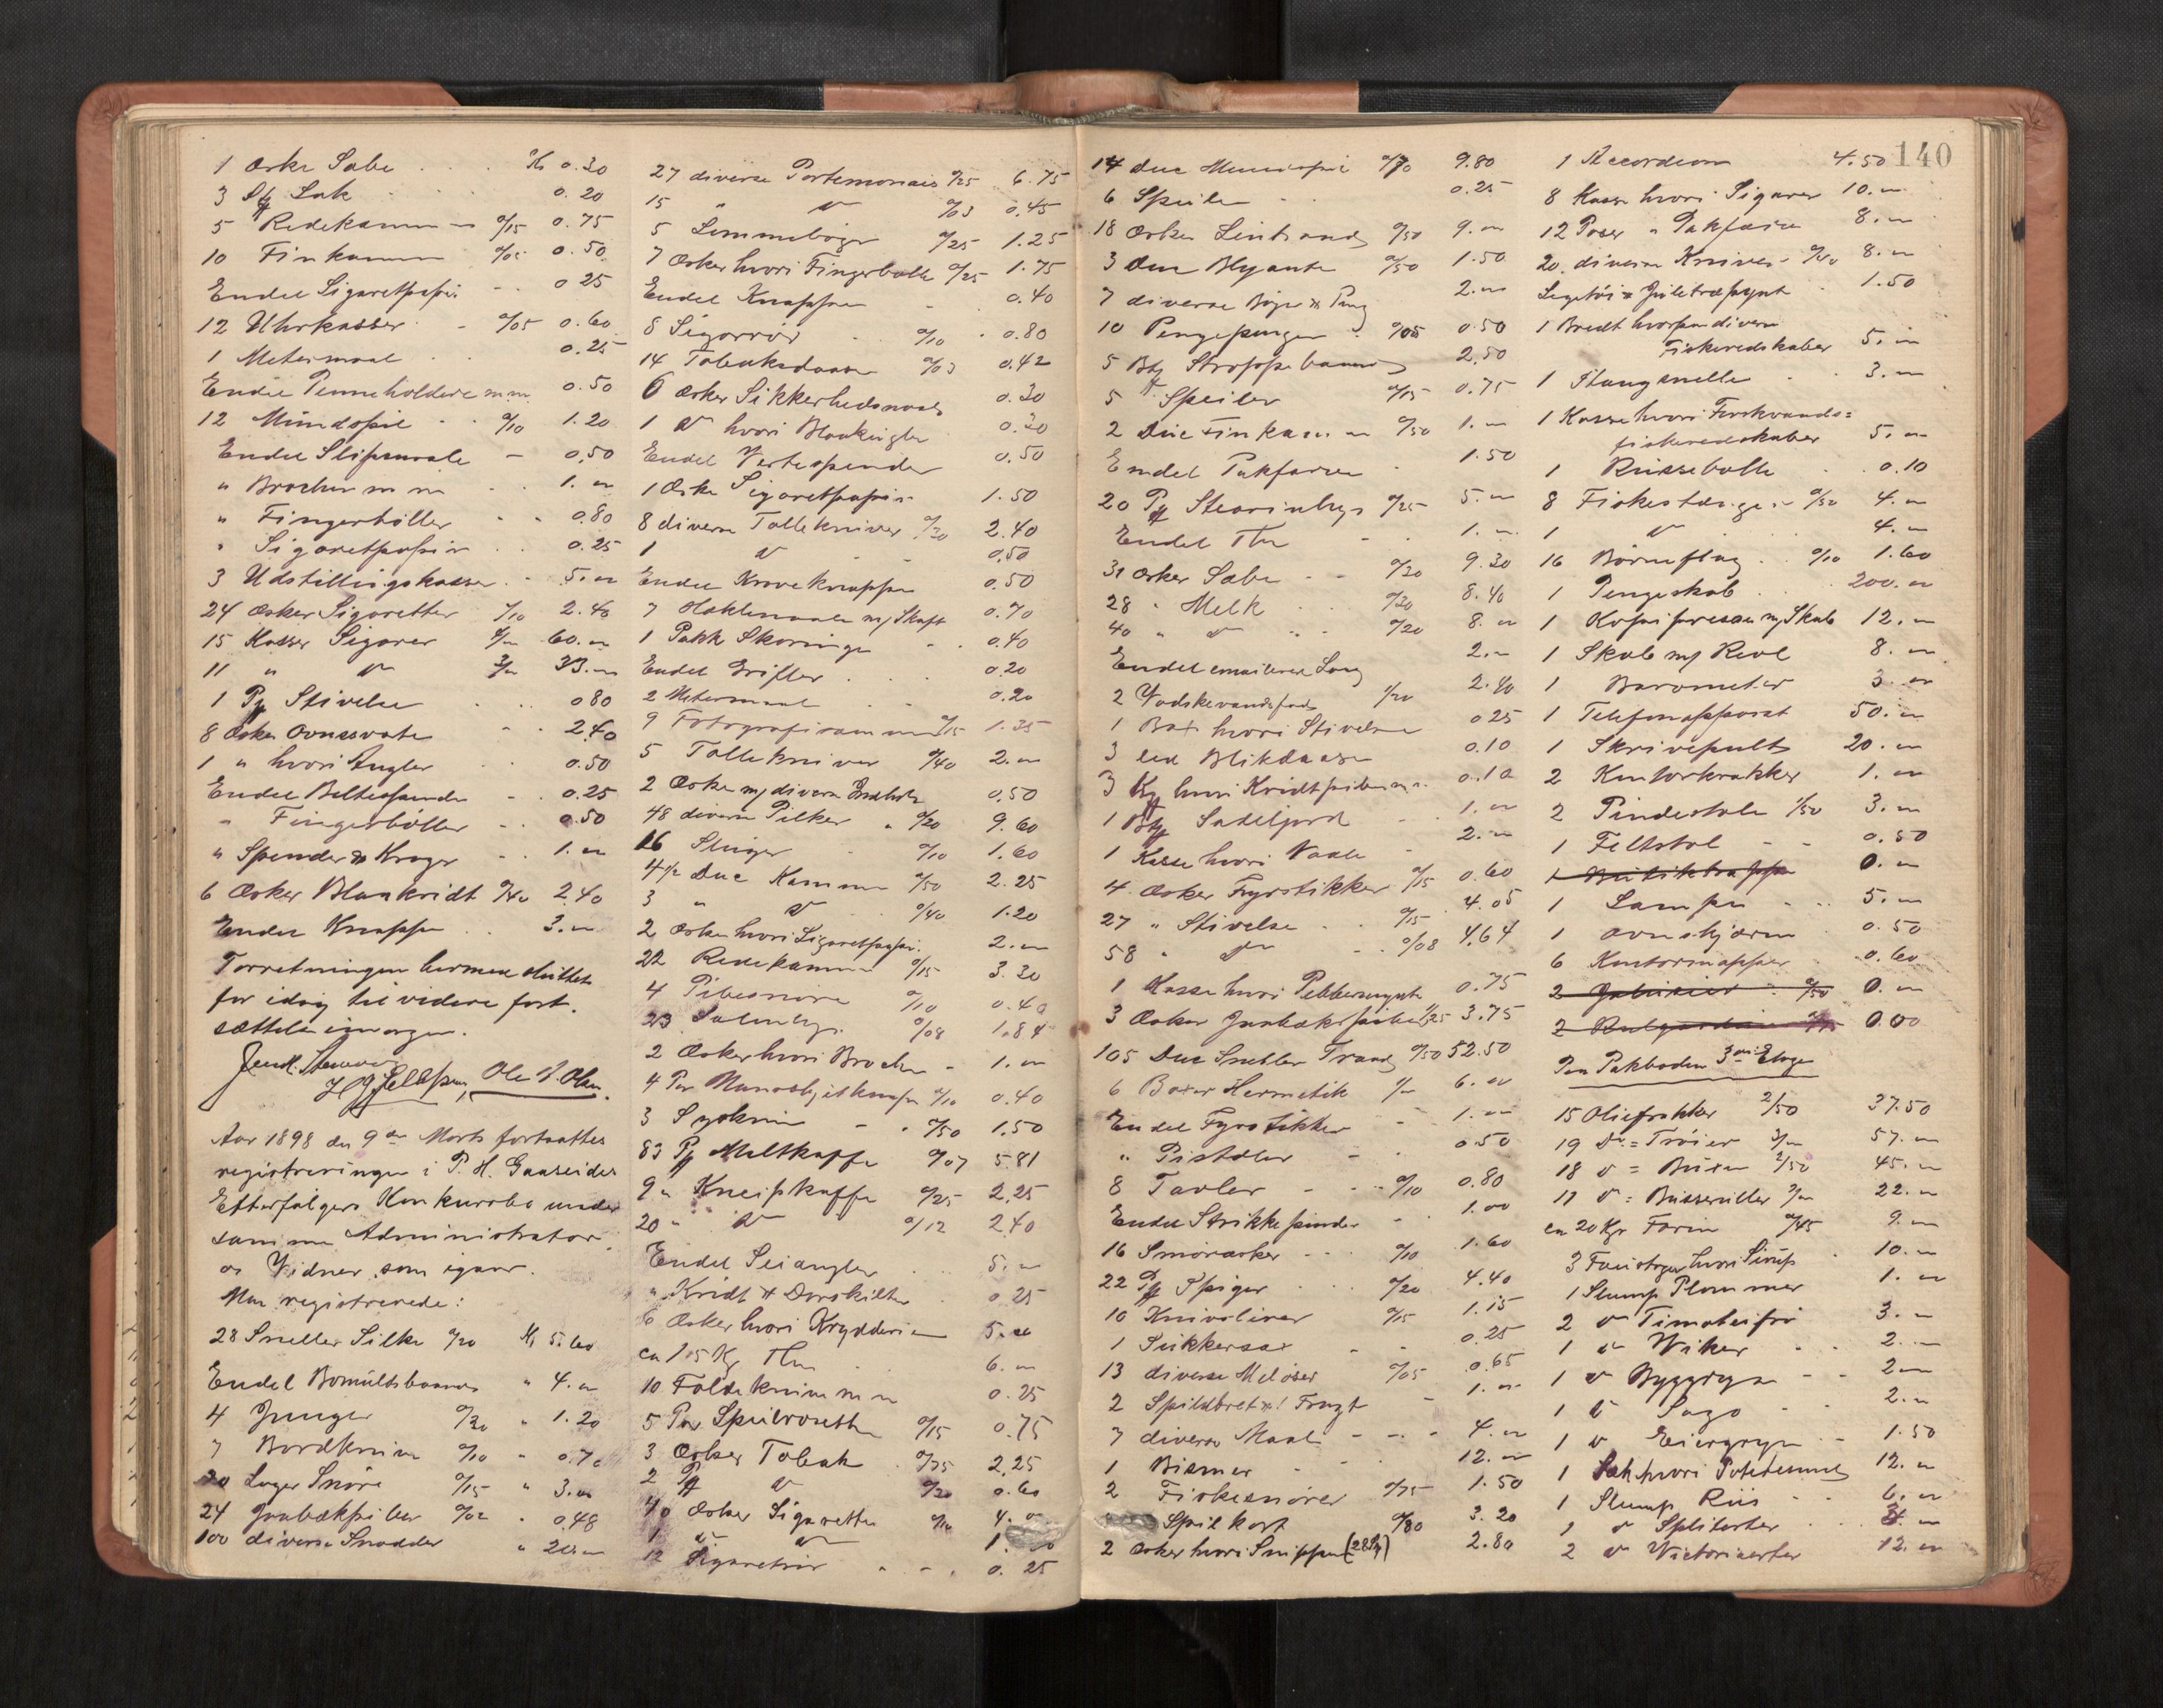 1 Æske Sæbe . . . Kr 0.30
3 Stg Lak . . . 0.20
5 Redekamme a/15 0.75
10 Finkamme a/05 0.50
Endel Sigaretpapir - . 0 25
12 Uhrkasser . - a/05 0.60
1 Metermaal . . 0.25
Endel Penneholdere m.m. 0.50
12 Mundspil . a/10 1.20
Endel Slipsnaale - 0.50
" Brocher m m . . 1. "
" Fingerbøller - . 0.80
" Sigaretpapir . . 0.25
3 Udstillingskasser . - 5. "
24 Æsker Sigaretter 1/10 2.40
15 Kasser Sigarer 4/" 60. "
11 " do 3/" 33. "
1 Pk Stivelse . . 0 80
8 Æsker Ovnssværte . 2.40
1 " hvori Angler . 0.50
Endel Beltespænder - . 0.25
" Fingerbøller - . 0.50
" Spænder & Kroger . . 1. "
6 Æsker Blankridt a/40 2.40
Endel Knapper . . 3. "
Forretningen hermed sluttet
for idag til videre fort-
sættelse imorgen.
Ole A. Olsen.
Aar 1898 den 9de Marts fortsattes
registreringen i P. H. Gaaseides
Efterfølgers Konkursbo under
samme Administrator
os Vidner som igaar.
Man registrerede:
28 Sneller Silke a/20 Kr 5.60
Endel Bomuldsbaand " 4. "
4 Junger a/30 " 1.20
7 Bordknive a/10 - 0.70
20 Læger Snøre a/15 " 3. "
24 Jernbækpiber a/02 . 0.48
100 diverse Snadder " 20. "
27 diverse Portemonaier a/25 6.75
15 " do a/03 0.45
5 Lommebøger a/25 1.25
7 Æsker hvori Fingerbølle a/25 1.75
Endel Knapper - 0.40
8 Sigarrør . a/10 . 0.80
14 Tobaksdaaser a/03 0.42
6 Æsker Sikkerhedsnaale 0.30
1 do hvori Blankngler 0.30
Endel Vestespænder 0.50
1 Æske Sigaretpapir 1.50
8 diverse Tollekniver a/30 2.40
1 do - - 0.50
Endel Kraveknapper 0.50
7 Hæklenaale m/ Skaft 0.70
1 Pakk Skoringe . . 0.40
Endel Grifler . . . 0.20
2 Metermaal . . 0.20
9 Fotografirammer a/15 1.35
5 Tollekniver a/40 2. "
2 Æske m/ diverse Indhold 0.50
48 diverse Pilker " a/20 9.60
16 Slinger . a/10 1.60
4 1/2 Duc Kamme a/50 2.25
3 " do a/40 1.20
2 Æske hvori Sigaretpapir. 2. "
22 Redekamme a/15 3.30
4 Pibesnøre a/10 0.40
23 Salmebgr. a/08 1.84
2 Æsker hvori Brocher - 1. "
4 Par Manschetknap a/10 0.40
3 Syskrin - . a/50 1.50
83 Pk Maltkaffe a/07 5.81
9 " Kneipkaffe a/25 2.25
20 " do a/12 2.40
Endel Seiangler . . 5. "
" Kridt & Dørskilter . 0.25
6 Æsker hvori Krydderier 5. "
ca 15 Kg The . . 6. "
10 Foldeknive m m 0.25
5 Par Speilrosetter a/15 0.75
3 Æsker Tobak a/75 2.25
2 Pk do a/30 0.60
40 Æsker Sigaretter a/10 4. "
1 do do 1.
12 Sigaretrør " - . 0.25
14 Duc Mundspil a/70 9.80
6 Speile . . 0.25
18 Æsker Lintraad a/50 9. "
3 Duc Blyanter a/50 1.50
7 diverse Bøger & Pung 2. "
10 Pengepunger . a/05 0.50
5 Btg Stroppebaand 2.50
5 Speiler a/15 0.75
2 Duc Finkamme a/50 1. "
Endel Pakfarve . 1.50
20 Pk Stearinlys a/25 5. "
Endel The - . 1. "
31 Æsker Sæbe - - a/30 9.30
28 " Melk . . a/30 8.40
40 " do . . a/20 8. "
Endel emailleret Løg 2. "
2 Vadskevandsfade 1/20 2.40
1 Bøt hvori Stivelse 0.25
3 led Blikdaaser 0.10
3 Kg hvori Kridtpiber m. 0.10
1 Btg Sadelgjord - . 1. "
1 Kasse hvori Naale - 2. "
4 Æsker Fyrstikker a/15 0.60
27 " Stivelse . . a/15 4.05
58 " do - . a/08 4.64
1 Kasse hvori Pebbermynte 0.75
3 Æsker Jernbækpiber 1/25 3.75
105 Duc Sneller Traad a/50 52.50
6 Boxer Hermetik 1/" 6. "
Endel Fyrstikker - 1. "
" Pistoler - . 0.50
8 Tavler - . . a/10 0.80
Endel Strikkepinder - . 1.00
16 Smøræsker - . . a/10 1.60
22 Pk Spiger . . a/20 4.40
10 Knivslirer a/15 1.15
1 Sukkersax - - 0.25
13 diverse Meløser a/05 0.65
2 Spildbret & 1 Fragt - 1. "
7 diverse Maal - - - 4. "
1 Bismer - - . 12. "
2 Fiskesnører a/75 1.50
Spilkort a/80 3.20
2 Æsker hvori Snipper (28) 2.80
140
1 Accordeon 4.50
8 Kasse hvori Sigarer 10. "
12 Poser " Pakfarve 8. "
20 diverse Kniver a/40 8. "
Legetøi & Juletræpynt - 1.50
1 Brædt hvorpaa diverse
Fiskeredskaber 5. "
1 Stangsnelle . . 3. "
1 Kasse hvori Ferskvands=
fiskeredskaber 5. "
1 Russebolle . . 0.10
8 Fiskestænger a/50 4. "
1 do . . 4. "
16 Børneflag . . a/10 1.60
1 Pengeskab . . 200. "
1 Kopipresse m/ Skab 12. "
1 Skab m/ Reol 8. "
1 Barometer 3. "
1 Telefonapparat 50. "
1 Skrivepult 20. "
2 Kontorkrakker 1. "
2 Pindestole 1/50 3. "
1 Feltstol - - 0.50
1 Butiktrappe 0. "
1 Lampe - - 5. "
1 Ovnskjærm . 0.50
6 Kontormapper . 0.60
2 Jalusier . a/50 0. "
2 Rulgardiner a/75 0.00
Paa Pakboden 3die Etage
15 Oliefrakker 2/50 37.50
19 Do = Trøier 3/" 57. "
18 do = Buxer 2/50 45. "
11 do = Busseruller 2/" 22. "
ca 20 Kgr Farin a/45 9. "
3 Fustager hvori Sirup . 10. "
1 Slump Plommer 1. "
2 do Timoteifrø 3. "
1 do Wiker . . 2. "
1 do Byggryn - - 2. "
1 do Sago . . 2. "
1 do Eiergryn . - 1.50
1 Sæk hvori Potetesmel 12. "
1 Slump Riis - - 6. "
1 do Spliterter . . 3. "
2 do Victoriaerter 12. "